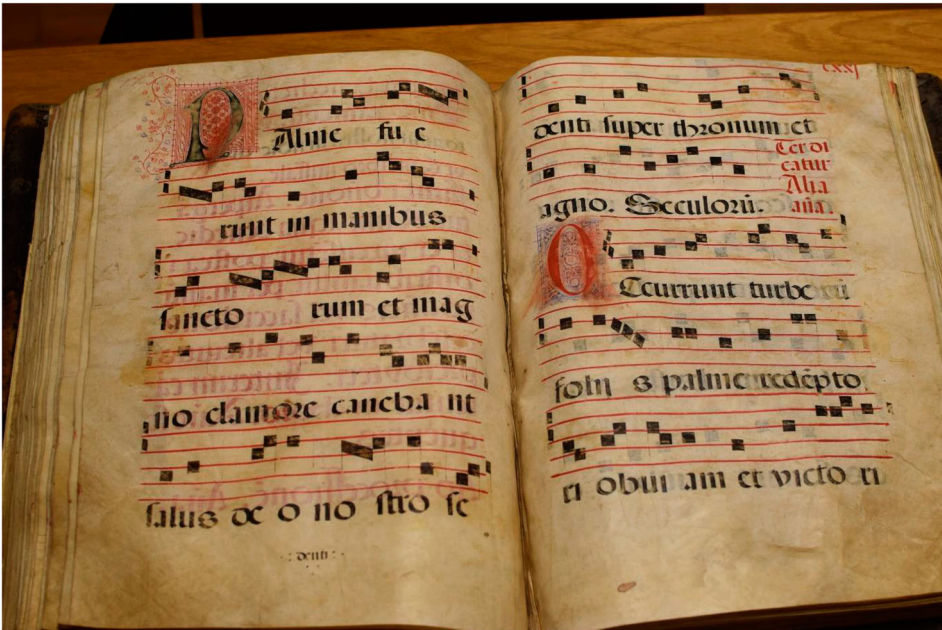 PAlme fu e
runt in manibus
sancto rum et mag
no clamore caneba nt
salus deo no stro se
: denti :
cxxj
denti super thronum et
agno. Seculorū.
Cer di
catur
Alia
aña.
OCcurrunt turbe cū
floribus palme redēpto
ri obuiam et victo ri